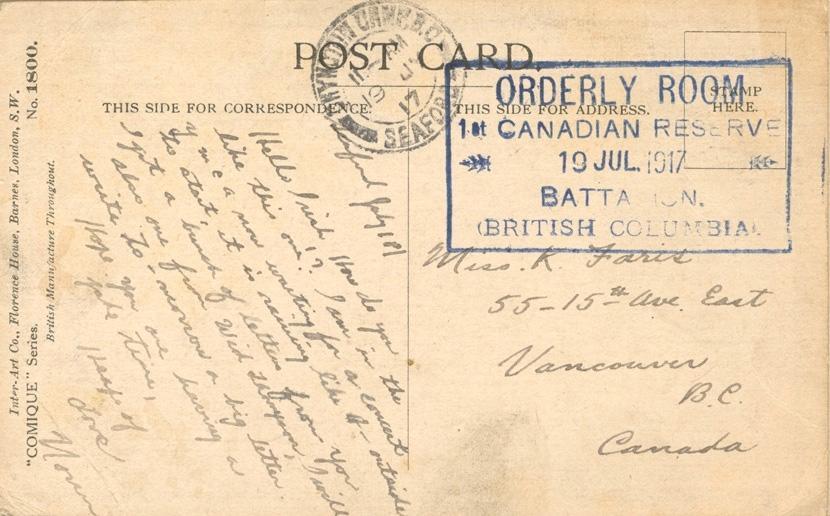 POST CARD.
THIS SIDE FOR CORRESPONDENCE.
THIS SIDE FOR ADDRESS.
STAMP
HERE.
CAMP
SEAFORD
19 JY 17
ORDERLY ROOM
1st CANADIAN RESERVE
19 JUL. 1917
BATTA ION.
(BRITISH COLUMBIA)
Inter-Art Co., Florence House, Barnes, London, S.W.
"COMIQUE" Series. No. 1800.
British Manufacture Throughout.
Seaford July 18
Hello How do you
like this one? I am in the
Y m c a now waiting for a concert
to start, it is raining like H- outside
I got a bunch of letters from you
also one from I will
write to-morrow a big letter.
Hope you are having a
time,
Heaps of
Love
Norm
Miss. K. Faris
55-15th Ave. East
Vancouver
B.C.
Canada